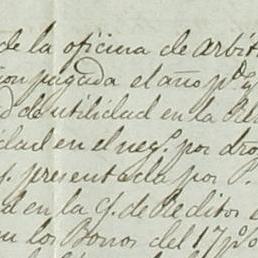 de la oficina de arbit
ion pagada el año pº y
d de utilidad en la Re
idad en el negº por dro
y. presentada por P.
d en la Cª de Reditos e
n los Bonos del 17 pº